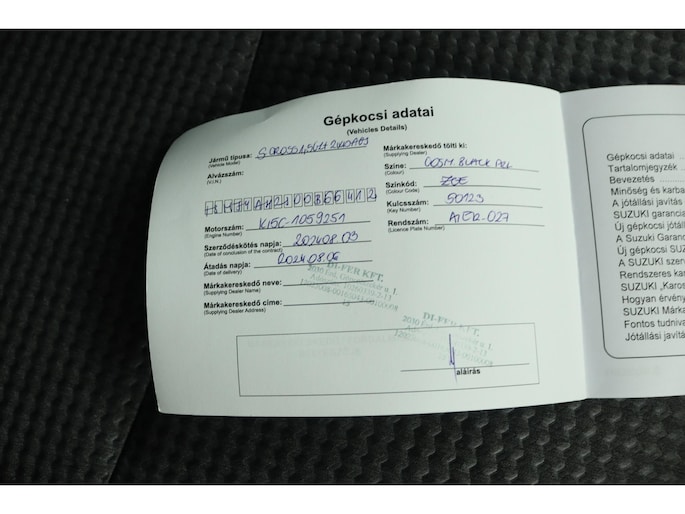 Gépkocsi adatai
(Vehicles Details)
Jármű típusa: S CROSS 1,5
(Vehicle Model)
Alvázszám:
(V.I.N.)
Motorszám: K15C-1059251
(Engine Number)
Szerződéskötés napja: 2024.08.03
(Date of conclusion of the contract)
Átadás napja: 2024.08.06
(Date of delivery)
Márkakereskedő neve:
(Supplying Dealer Name)
Márkakereskedő címe:
(Supplying Dealer Address)
Márkakereskedő tölti ki:
(Supplying Dealer)
Színe: COSM BLACK
(Colour)
Színkód: ZCE
(Colour Code)
Kulcsszám: 50123
(Key Number)
Rendszám: -027
(Licence Plate Number)
DI-FER KFT.
DI-FER KFT.
aláírás
Gépkocsi adatai
Tartalomjegyzék
Bevezetés
Minőség és karba
A jótállási javítás
SUZUKI garancia
Új gépkocsi jótáll
A SUZUKI Garan
Új gépkocsi SUZ
A SUZUKI szen
Rendszeres kar
SUZUKI „Karos
Hogyan érvény
SUZUKI Márka
Fontos tudniva
Jótállási javítá